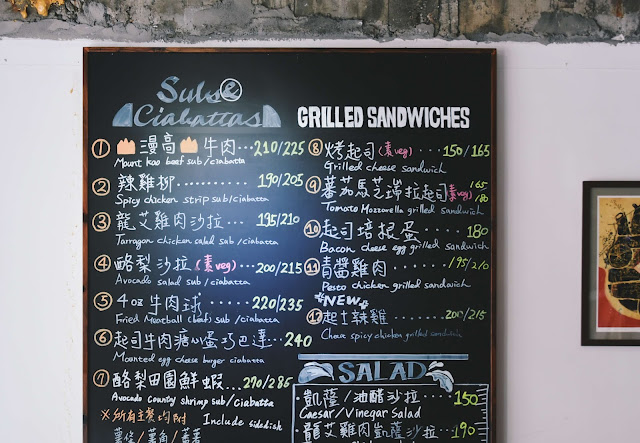 Subs &
Ciabattas
① 漫高 牛肉...210/225
Mount kao beef sub/ciabatta
② 辣雞柳 ......... 190/205
Spicy chicken strip sub/ciabatta
③ 龍艾雞肉沙拉 ...... 195/210
Tarragon chicken salad sub/ciabatta
④ 酪梨沙拉(素veg) ... 200/215
Avocado salad sub/ciabatta
⑤ 4oz 牛肉球 ........ 220/235
Fried Meatball (beef) sub/ciabatta
⑥ 起司牛肉溏心蛋巧巴達...240
Mounted egg cheese burger ciabatta
⑦ 酪梨田園鮮蝦...270/285
Avocado country shrimp sub/ciabatta
※所有主餐均附 Include sidedish
薯條/薯角/香蕉
GRILLED SANDWICHES
⑧ 烤起司(素veg) ..... 150/165
Grilled cheese sandwich
⑨ 蕃茄馬芝瑞拉起司素veg 165/180
Tomato Mozzarella grilled sandwich
⑩ 起司培根蛋 ........ 180
Bacon cheese egg grilled sandwich
⑪ 青醬雞肉 ....... 195/210
Pesto chicken grilled sandwich
*NEW*
⑫ 起士辣雞 ......... 200/215
Cheese spicy chicken grilled sandwich
SALAD
·凱薩/油醋沙拉 ..... 150
Caesar/Vinegar Salad
·龍艾雞肉凱薩沙拉...190